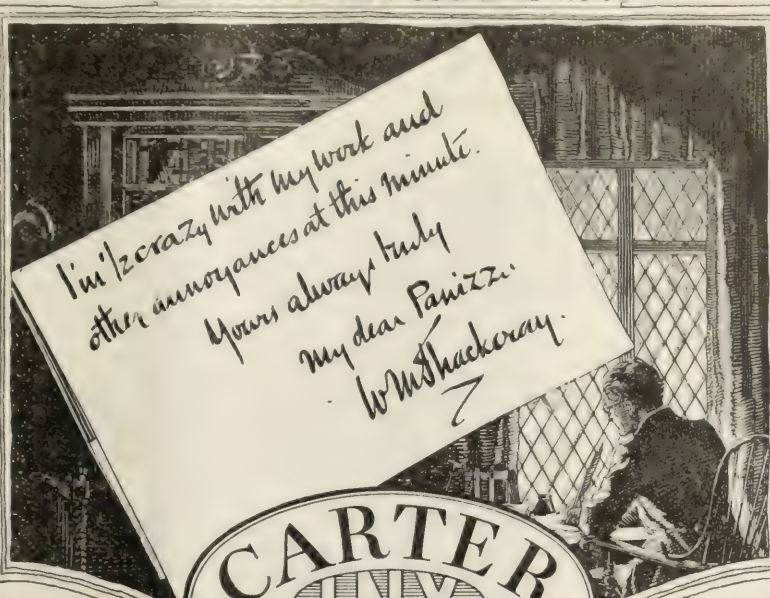 I'm ½ crazy with my work and
other annoyances at this minute.
Yours always truly
my dear Panizzi.
WMThackeray.
CARTER
INX